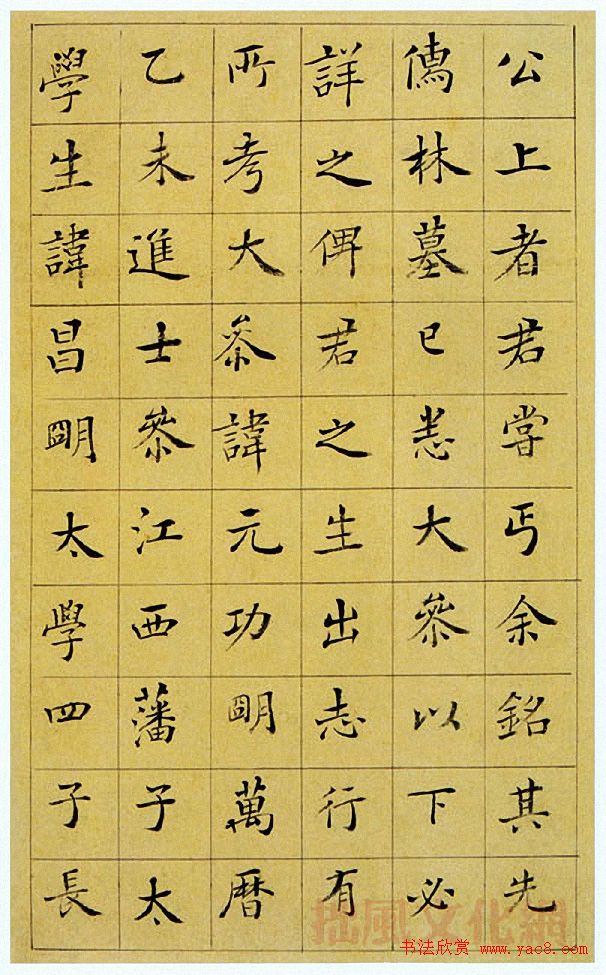 公上者君嘗丐余銘其先
林墓已悉大參以下必
詳之俾君之生出志行有
所考大參諱元功朙萬曆
乙未進士參江西藩子太
學生諱昌朙太學四子長
拙風文化網
书法欣赏 www.yac8.com